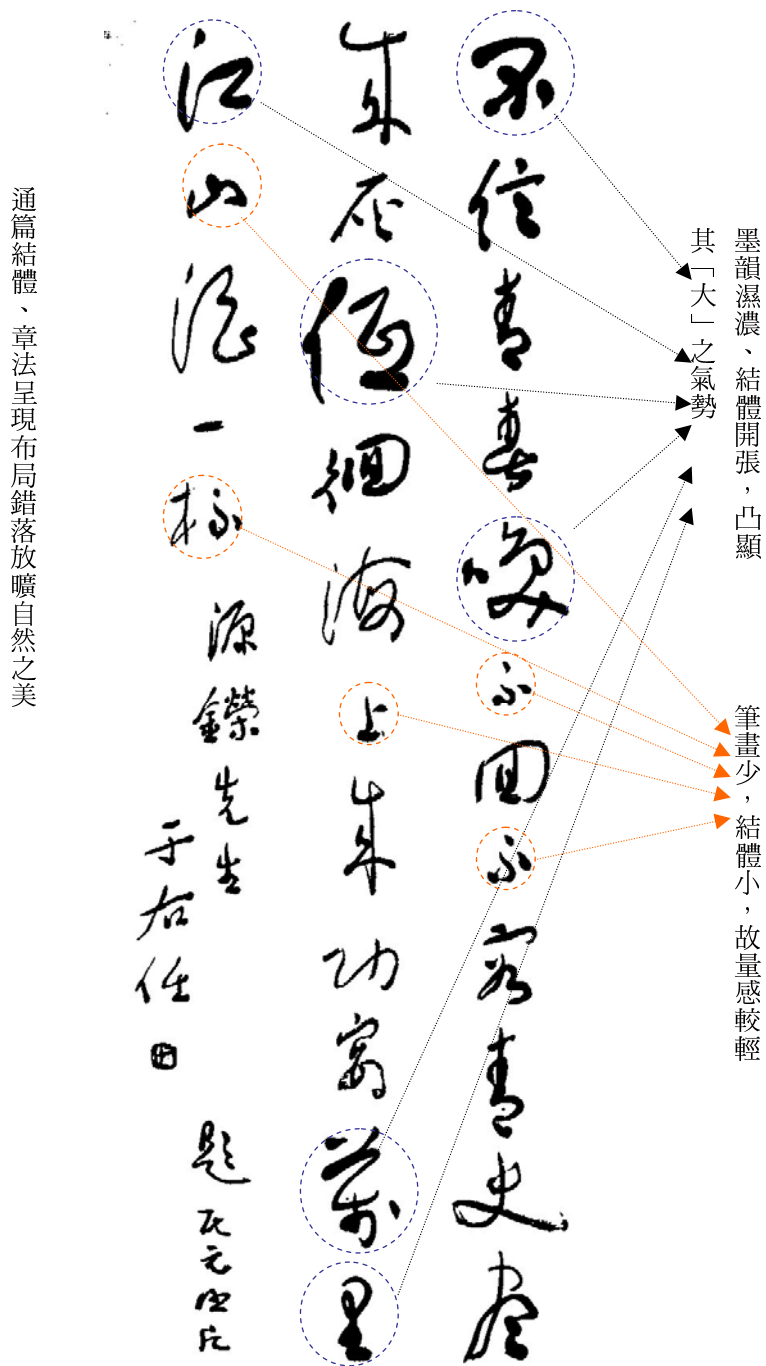 墨韻濕濃、結體開張，凸顯
其「大」之氣勢
筆畫少，結體小，故量感較輕
不信青春喚不回不容青史盡
成灰低徊海上成功宴萬里
江山酒一杯
源鑅先生
于右任
題民元照片
通篇結體、章法呈現布局錯落放曠自然之美